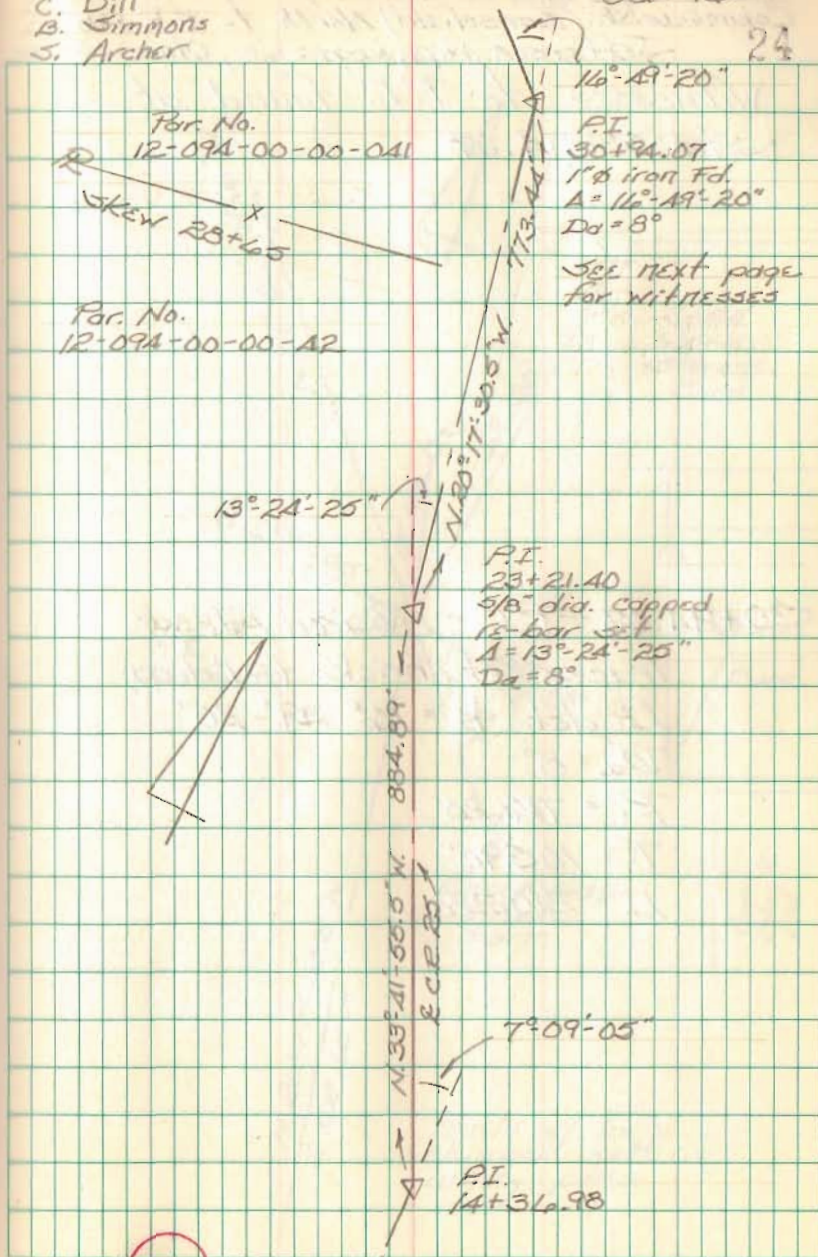 C. Dill
B. Simmons
S. Archer
24
16°-49'-20"
Par. No.
12-094-00-00-041
SKEW 28+65
P.I.
30+94.07
1"ø iron Fd.
Δ=16°-49'-20"
Da=8°
773.44'
SEE next page
for witnesses
Par. No.
12-094-00-00-42
N.20°-17'-30.5"W.
13°-24'-25"
P.I.
23+21.40
5/8" dia. capped
re-bar set
Δ=13°-24'-25"
Da=8°
884.89'
N.33°-41'-55.5"W.
℄ C.R. 25
7°-09'-05"
P.I.
14+36.98